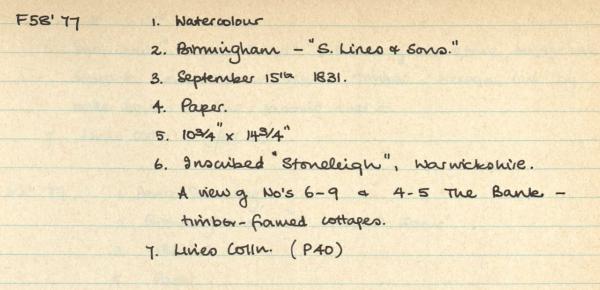 F58'77 1. Watercolour
2. Birmingham - "S. Lines & Sons."
3. September 15th 1831.
4. Paper.
5. 10¾" x 14¾"
6. Inscribed "Stoneleigh", Warwickshire.
A view of No's 6-9 & 4-5 The Bank -
timber-framed cottages.
7. Lines Colln. (P40)